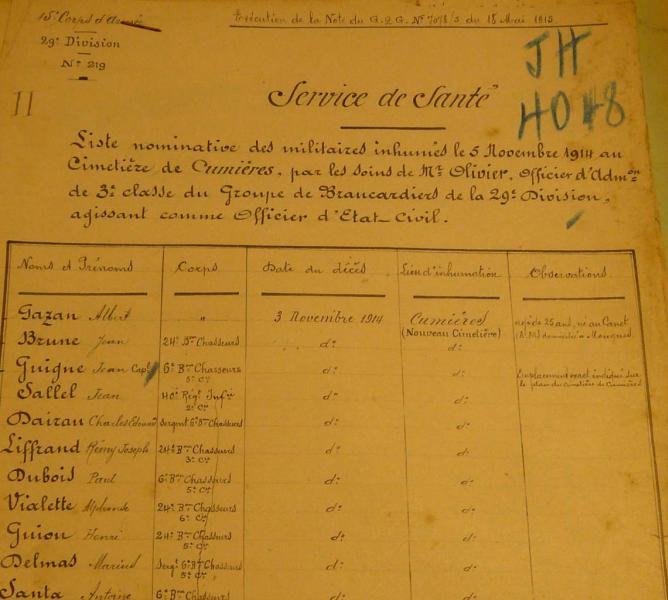 15e Corps d'Armée
Exécution de la Note du G.Q.G. No 7078/S du 18 Mai 1915
29e Division
No 219
JH
4048
II
Service de Santé
Liste nominative des militaires inhumés le 5 Novembre 1914 au
Cimetière de Cumières, par les soins de Mr Olivier, Officier d'Admon
de 3e classe du Groupe de Brancardiers de la 29e Division,
agissant comme Officier d'Etat-Civil.
Noms et Prénoms Corps Date du décès Lieu d'inhumation Observations
Gazan Albert " 3 Novembre 1914 Cumières (Nouveau Cimetière) âgé de 25 ans, né au Canet
(A.M.) domicilié à Mougins
Brune Jean 24e Bon Chasseurs do do
Guigne Jean Capl 6e Bon Chasseurs 5e Cie do do Emplacement exact indiqué sur
le plan du Cimetière de Cumières
Sallel Jean 40e Régt Infie 2e Cie do do
Dairau Charles Edouard Sergent 6e Bon Chasseurs do do
Liffrand Rémy Joseph 24e Bon Chasseurs 3e Cie do do
Dubois Paul 6e Bon Chasseurs 5e Cie do do
Vialette Alphonse 24e Bon Chasseurs 6e Cie do do
Guion Henri 24e Bon Chasseurs 5e Cie do do
Delmas Marius Sergt 6e Bon Chasseurs 5e Cie do do
Santa Antoine 6e Bon Chasseurs